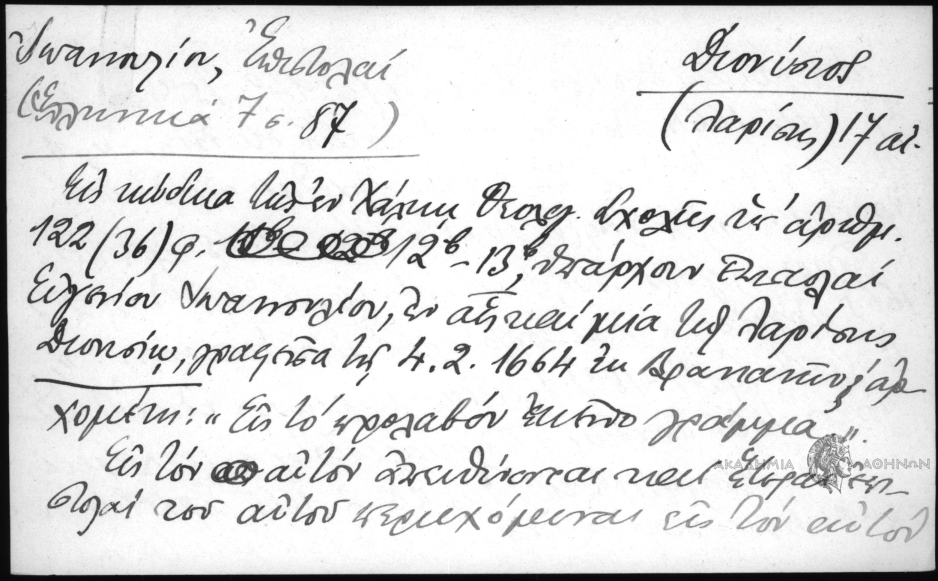 Γιαννουλίου, Ἐπιστολαί
(Ἑλληνικά 7 σ. 87)
Διονύσιος
(Λαρίσης) 17 αἰ.
Εἰς κώδικα τῆς ἐν Χάλκῃ Θεολ. Σχολῆς ὑπ' ἀριθμ.
122 (36) φ. 12β – 13β, ὑπάρχουν ἐπιστολαί
Εὐγενίου Γιαννουλίου, ἐν αἷς καί μία τῷ Λαρίσης
Διονυσίῳ, γραφεῖσα τῇ 4.2.1664 ἐκ Βρανιανῶν, ἀρ-
χομένη: «Εἰς τό προλαβόν ἐκεῖνο γράμμα».
Εἰς τόν αὐτόν ἀπευθύνονται καί ἕτεραι ἐπι-
στολαί τοῦ αὐτοῦ περιεχόμεναι εἰς τόν αὐτόν
ΑΚΑΔΗΜΙΑ ΑΘΗΝΩΝ